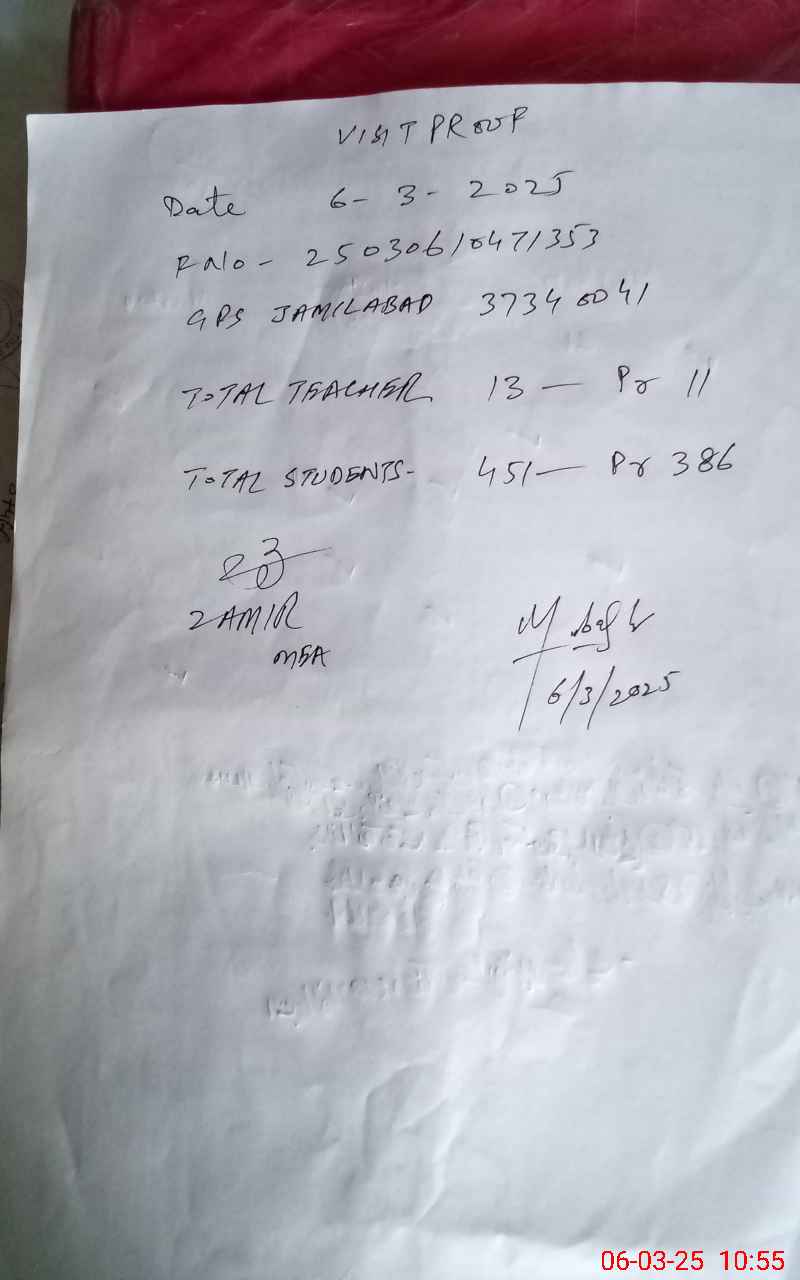 VISIT PROOF
Date 6-3-2025
F No - 25030610471353
GPS JAMILABAD 37340041
TOTAL TEACHER 13 — Pr 11
TOTAL STUDENTS- 451 — Pr 386
ZAMIR
MEA
6/3/2025
06-03-25 10:55